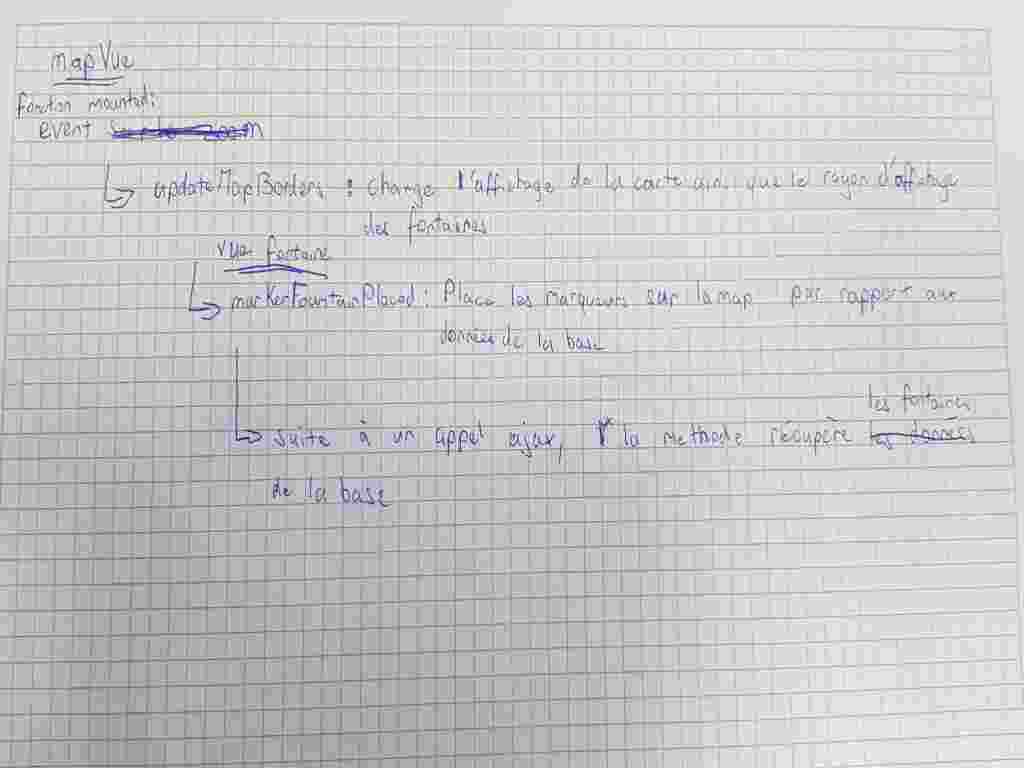 mapVue
fonction mounted:
event
updateMapBorders : change l'affichage de la carte ainsi que le rayon d'affichage
des fontaines
vue fontaine
markerFountainPlaced : Place les marqueurs sur la map par rapport aux
données de la base
les fontaines
suite à un appel ajax, la methode récupère les données
de la base